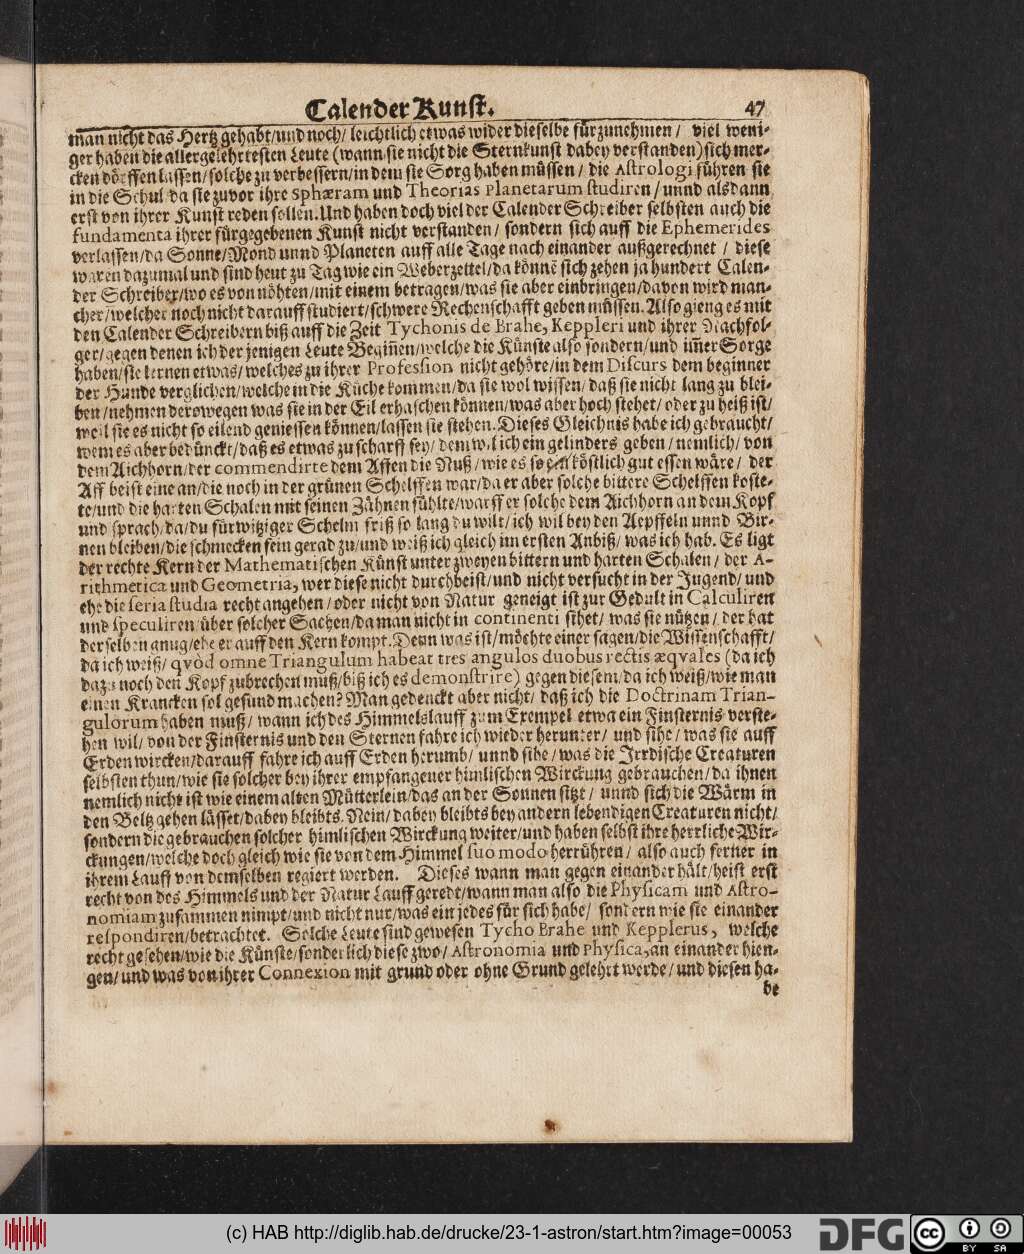 Calender Kunst. 47
man nicht das Hertz gehabt/und noch/ leichtlich etwas wider dieselbe fürzunehmen/ viel weni-
ger haben die allergelehrtesten Leute (wann sie nicht die Sternkunst dabey verstanden) sich mer-
cken dörffen lassen/solche zu verbessern/in dem sie Sorg haben müssen/ die Astrologi führen sie
in die Schul da sie zuvor ihre Sphæram und Theorias Planetarum studiren/ unnd alsdann
erst von ihrer Kunst reden sollen. Und haben doch viel der Calender Schreiber selbsten auch die
fundamenta ihrer fürgegebenen Kunst nicht verstanden/ sondern sich auff die Ephemerides
verlassen/da Sonne/Mond unnd Planeten auff alle Tage nach einander außgerechnet / diese
waren dazumal und sind heut zu Tag wie ein Weberzettel/da könnẽ sich zehen ja hundert Calen-
der Schreiber/wo es von nöhten/mit einem betragen/was sie aber einbringen/davon wird man-
cher/welcher noch nicht darauff studiert/schwere Rechenschafft geben müssen. Also gieng es mit
den Calender Schreibern biß auff die Zeit Tychonis de Brahe, Keppleri und ihrer Nachfol-
ger/gegen denen ich der jenigen Leute Begiñen/welche die Künste also sondern/und iñer Sorge
haben/sie lernen etwas/welches zu ihrer Profession nicht gehöre/in dem Discurs dem beginner
der Hunde verglichen/welche in die Küche kommen/da sie wol wissen/ daß sie nicht lang zu blei-
ben/nehmen derowegen was sie in der Eil erhaschen können/was aber hoch stehet/ oder zu heiß ist/
weil sie es nicht so eilend geniessen können/lassen sie stehen. Dieses Gleichnis habe ich gebraucht/
wem es aber bedünckt/daß es etwas zu scharff sey/ dem wil ich ein gelinders geben/ nemlich/ von
dem Aichhorn/der commendirte dem Affen die Nuß/wie es so köstlich gut essen wäre/ der
Aff beist eine an/die noch in der grünen Schelffen war/da er aber solche bittere Schelffen koste-
te/und die harten Schalen mit seinen Zähnen fühlte/warff er solche dem Aichhorn an dem Kopf
und sprach/da/du fürwitziger Schelm friß so lang du wilt/ ich wil bey den Aepffeln unnd Bir-
nen bleiben/die schmecken fein gerad zu/und weiß ich gleich im ersten Anbiß/was ich hab. Es ligt
der rechte Kern der Mathematischen Künst unter zweyen bittern und harten Schalen/ der A-
rithmetica und Geometria, wer diese nicht durchbeist/und nicht versucht in der Jugend/ und
ehe die seria studia recht angehen/oder nicht von Natur geneigt ist zur Gedult in Calculiren
und speculiren/über solcher Sachen/da man nicht in continenti sihet/ was sie nützen/ der hat
derselben gnug/ehe er auff den Kern kompt. Denn was ist/möchte einer sagen/die Wissenschafft/
da ich weiß/ qvòd omne Triangulum habeat tres angulos duobus rectis æqvales (da ich
dazu noch den Kopf zubrechen muß/biß ich es demonstrire) gegen diesem/da ich weiß/wie man
einen Krancken sol gesund machen? Man gedenckt aber nicht/ daß ich die Doctrinam Trian-
gulorum haben muß/ wann ich des Himmelslauff zum Exempel etwa ein Finsternis verste-
hen wil/ von der Finsternis und den Sternen fahre ich wieder herunter/ und sihe/ was sie auff
Erden wircken/darauff fahre ich auff Erden herumb/ unnd sihe/was die Irrdische Creaturen
selbsten thun/wie sie solcher bey ihrer empfangener himlischen Wirckung gebrauchen/da ihnen
nemlich nicht ist wie einem alten Mütterlein/das an der Sonnen sitzt/ unnd sich die Wärm in
den Beltz gehen lässet/dabey bleibts. Nein/dabey bleibts bey andern lebendigen Creaturen nicht/
sondern die gebrauchen solcher himlischen Wirckung weiter/und haben selbst ihre herrliche Wir-
ckungen/welche doch gleich wie sie von dem Himmel suo modo herrühren/ also auch ferner in
ihrem Lauff von demselben regiert werden. Dieses wann man gegen einander hält/heist erst
recht von des Himmels und der Natur Lauff geredt/wann man also die Physicam und Astro-
nomiam zusammen nimpt/und nicht nur/was ein jedes für sich habe/ sondern wie sie einander
respondiren/betrachtet. Solche Leute sind gewesen Tycho Brahe und Kepplerus, welche
recht gesehen/wie die Künste/sonderlich diese zwo/Astronomia und Physica, an einander hien-
gen/und was von ihrer Connexion mit grund oder ohne Grund gelehrt werde/und diesen ha-
be
(c) HAB http://diglib.hab.de/drucke/23-1-astron/start.htm?image=00053
DFG cc BY SA